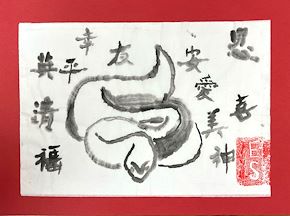 幸
友
安
共
平
愛
喜
清
美
福
神